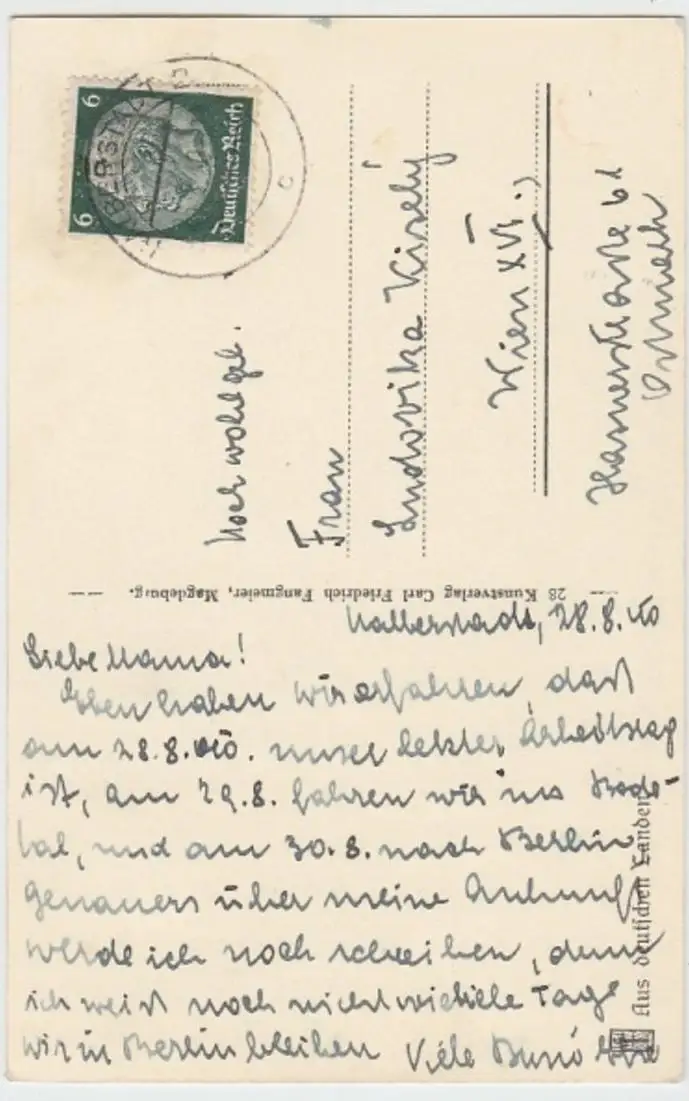 Halberstadt, 28.8.40
Liebe Mama!
Eben haben wir erfahren, daß
am 28.8.40. unser letzter Arbeitstag
ist, am 29.8. fahren wir ins Bode-
tal, und am 30.8. nach Berlin
genauers über meine Ankunft
werde ich noch schreiben, denn
ich weiß noch nicht wieviele Tage
wir in Berlin bleiben Viele Bussi
Aus deutschen Landen
28 Kunstverlag Carl Friedrich Fangmeier, Magdeburg.
HALBERSTADT 2
c
6 6
Deutsches Reich
Frau
Ludovika Kisely
Wien XVI.,
61
Ostmark